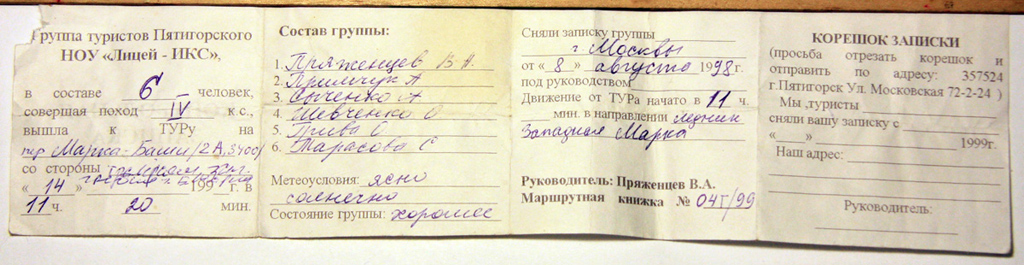 Группа туристов Пятигорского
НОУ «Лицей - ИКС»,
в составе 6 человек,
совершая поход IV к.с.,
вышла к ТУРу на
пер Марка-Баши /2А, 3400/
со стороны
« 14 » 199 г. в
11 ч. 20 мин.
Состав группы:
1. Пряженцев В.А.
2. Примчук А
3. Сыченко А
4. Шевченко О
5. Грива О
6. Тарасова С
Метеоусловия: ясно
солнечно
Состояние группы: хорошее
Сняли записку группы
г Москвы
от « 8 » августа 1998г.
под руководством
Движение от ТУРа начато в 11 ч.
мин. в направлении ледник
Западная Марка
Руководитель: Пряженцев В.А.
Маршрутная книжка № 04Г/99
КОРЕШОК ЗАПИСКИ
(просьба отрезать корешок и
отправить по адресу: 357524
г.Пятигорск Ул. Московская 72-2-24 )
Мы ,туристы
сняли вашу записку с
«___» 1999г.
Наш адрес:
Руководитель: